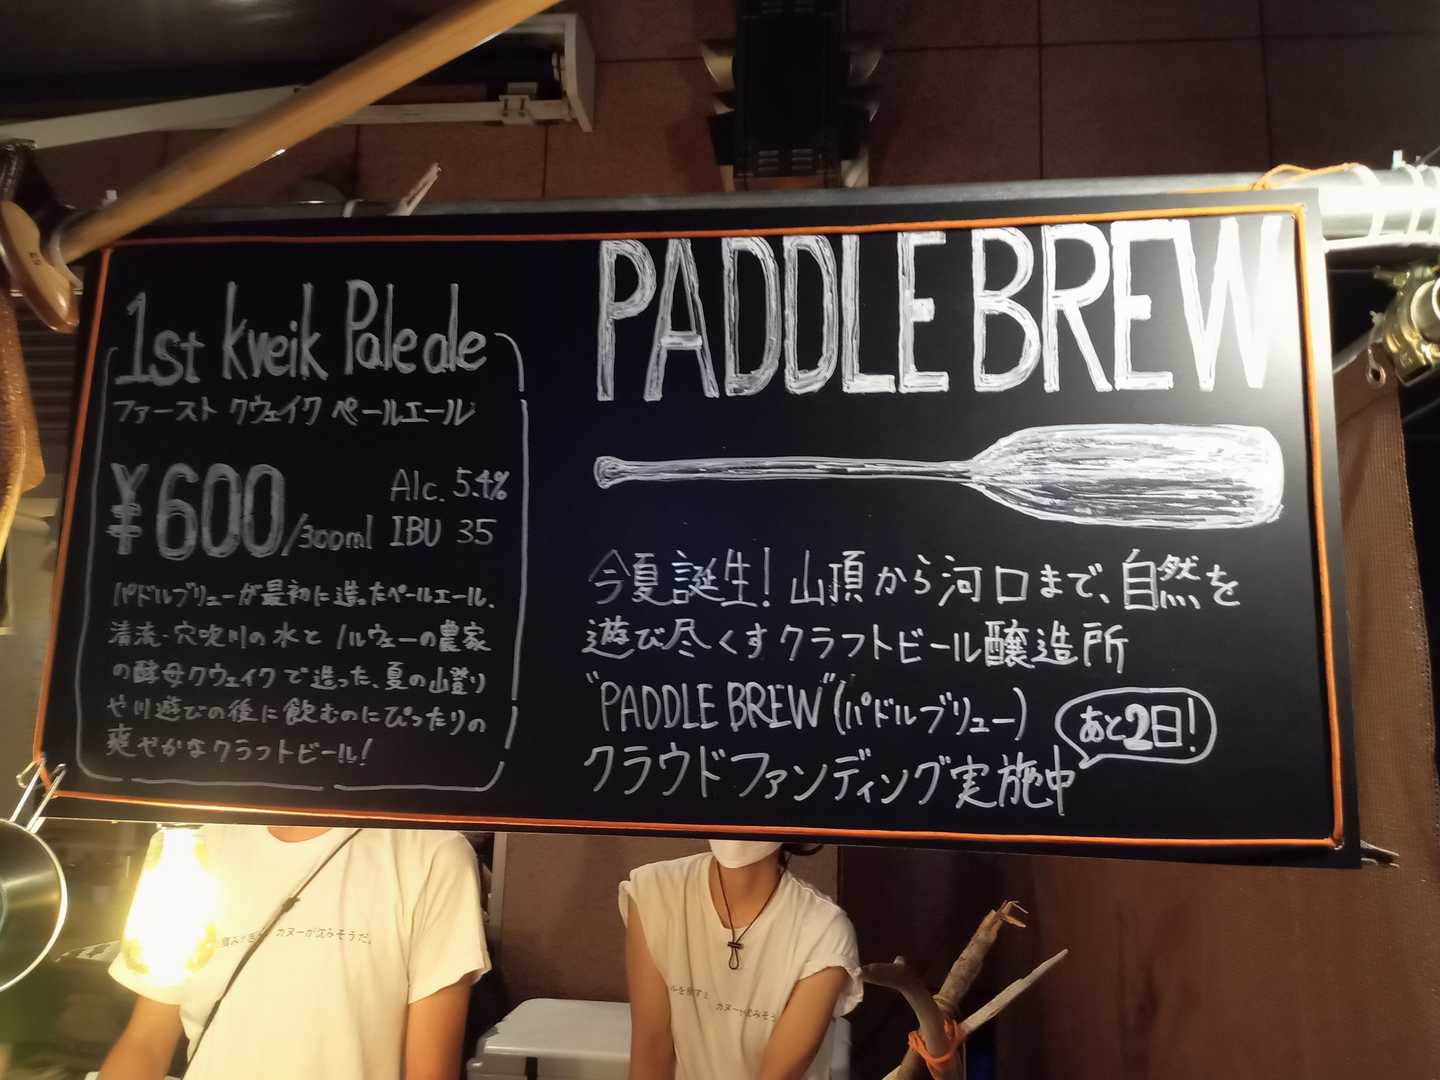 1st Kveik Pale ale
ファースト クウェイク ペールエール
¥600/300ml
Alc. 5.4%
IBU 35
パドルブリューが最初に造ったペールエール、
清流・穴吹川の水とノルウェーの農家
の酵母クウェイクで造った、夏の山登り
や川遊びの後に飲むのにぴったりの
爽やかなクラフトビール!
PADDLE BREW
今夏誕生!山頂から河口まで、自然を
遊び尽くすクラフトビール醸造所
"PADDLE BREW"(パドルブリュー)
クラウドファンディング実施中
あと2日!
カヌーが沈みそうだ。
カヌーが沈みそう